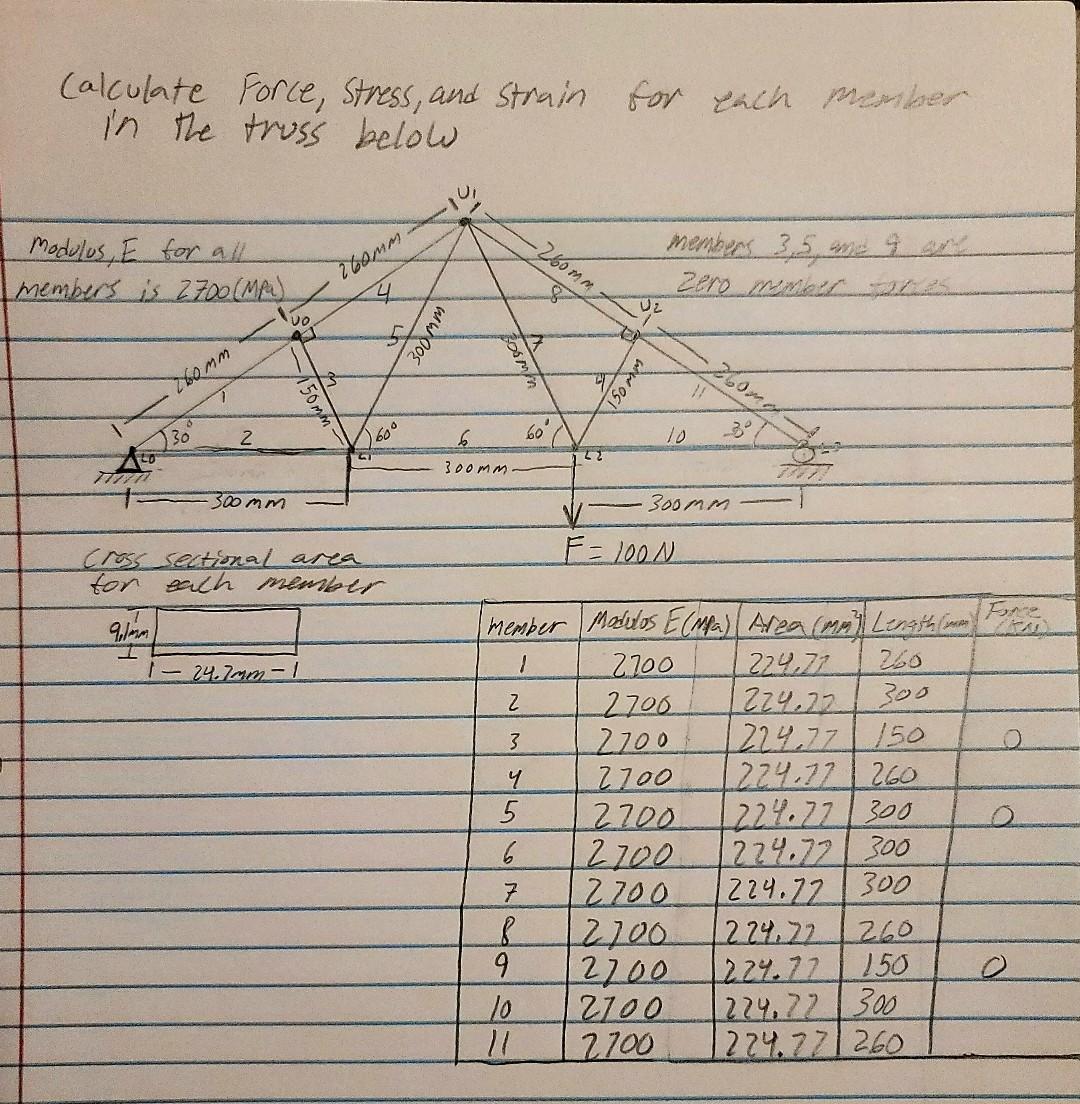 Calculate Force, Stress, and Strain for each member
in the truss below
U1
Modulus, E for all
members is 2700(MPa)
members 3,5, and 9 are
zero member forces
260mm
260mm
4
8
U0
U2
5
300mm
300mm
7
260mm
260mm
1
3
150mm
9
150mm
11
30°
2
60°
6
60°
10
30°
L0
L1
L2
L3
300mm
300mm
300mm
F = 100N
Cross sectional area
for each member
9.1mm
24.7mm
Member Modulus E (MPa) Area (mm²) Length (mm) Force (KN)
1 2700 224.77 260
2 2700 224.77 300
3 2700 224.77 150 0
4 2700 224.77 260
5 2700 224.77 300 0
6 2700 224.77 300
7 2700 224.77 300
8 2700 224.77 260
9 2700 224.77 150 0
10 2700 224.77 300
11 2700 224.77 260